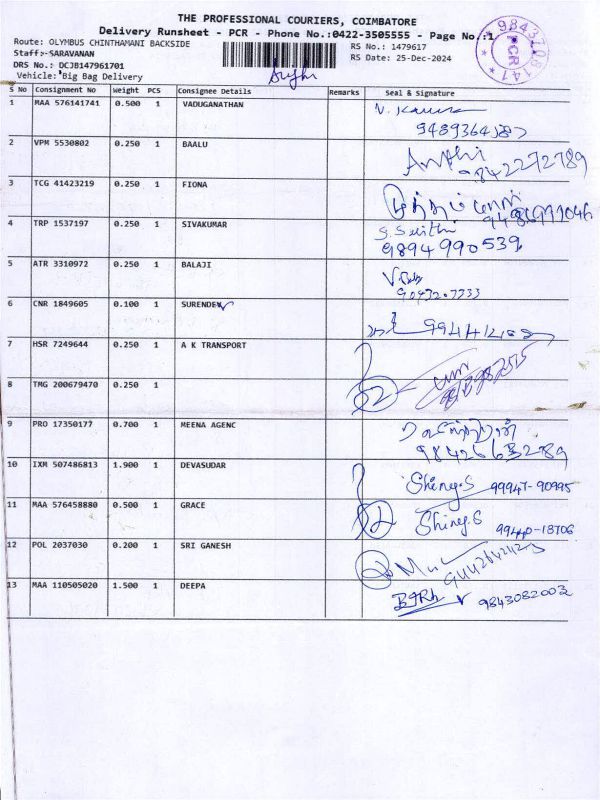 THE PROFESSIONAL COURIERS, COIMBATORE
Delivery Runsheet - PCR - Phone No.:0422-3505555 - Page No.:1
Route: OLYMBUS CHINTHAMANI BACKSIDE
RS No.: 1479617
Staff:-SARAVANAN
RS Date: 25-Dec-2024
DRS No.: DCJB147961701
Vehicle: Big Bag Delivery
PCR
S No Consignment No Weight PCS Consignee Details Remarks Seal & Signature
1 MAA 576141741 0.500 1 VADUGANATHAN
2 VPM 5530802 0.250 1 BAALU 9842272789
3 TCG 41423219 0.250 1 FIONA
4 TRP 1537197 0.250 1 SIVAKUMAR 9894990539
5 ATR 3310972 0.250 1 BALAJI
6 CNR 1849605 0.100 1 SURENDER
7 HSR 7249644 0.250 1 A K TRANSPORT
8 TMG 200679470 0.250 1
9 PRO 17350177 0.700 1 MEENA AGENC
10 IXM 507486813 1.900 1 DEVASUDAR Shiney.S 99947-90995
11 MAA 576458880 0.500 1 GRACE Shiney.S 99440-18706
12 POL 2037030 0.200 1 SRI GANESH
13 MAA 110505020 1.500 1 DEEPA 9843082003